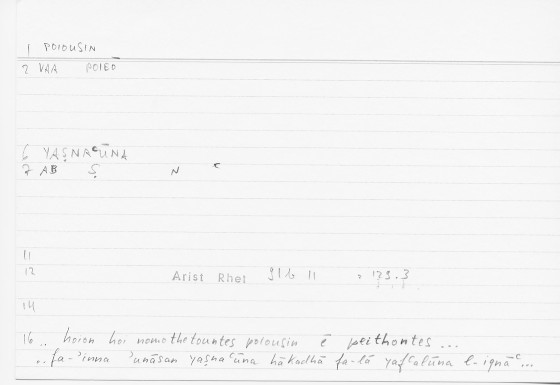 1 POIOUSIN
2 VAA POIEO
6 YAṢNAʿŪNA
7 AB Ṣ N ʿ
11
12 Arist Rhet 91b 11 = 179.3
14
16 .. hoion hoi nomothetountes poiousin ē peithontes ...
.. fa-ʾinna ʾunāsan yaṣnaʿūna hākadhā fa-lā yafʿalūna l-iqnāʿ ...